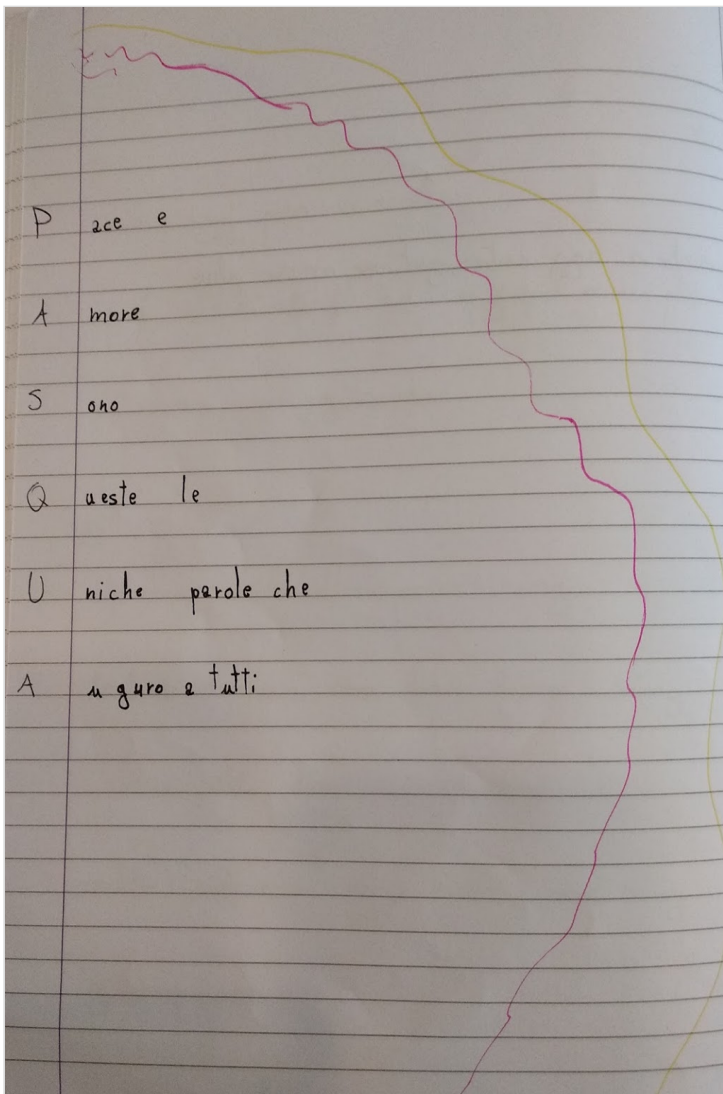 P ace e
A more
S ono
Q ueste le
U niche parole che
A uguro a tutti